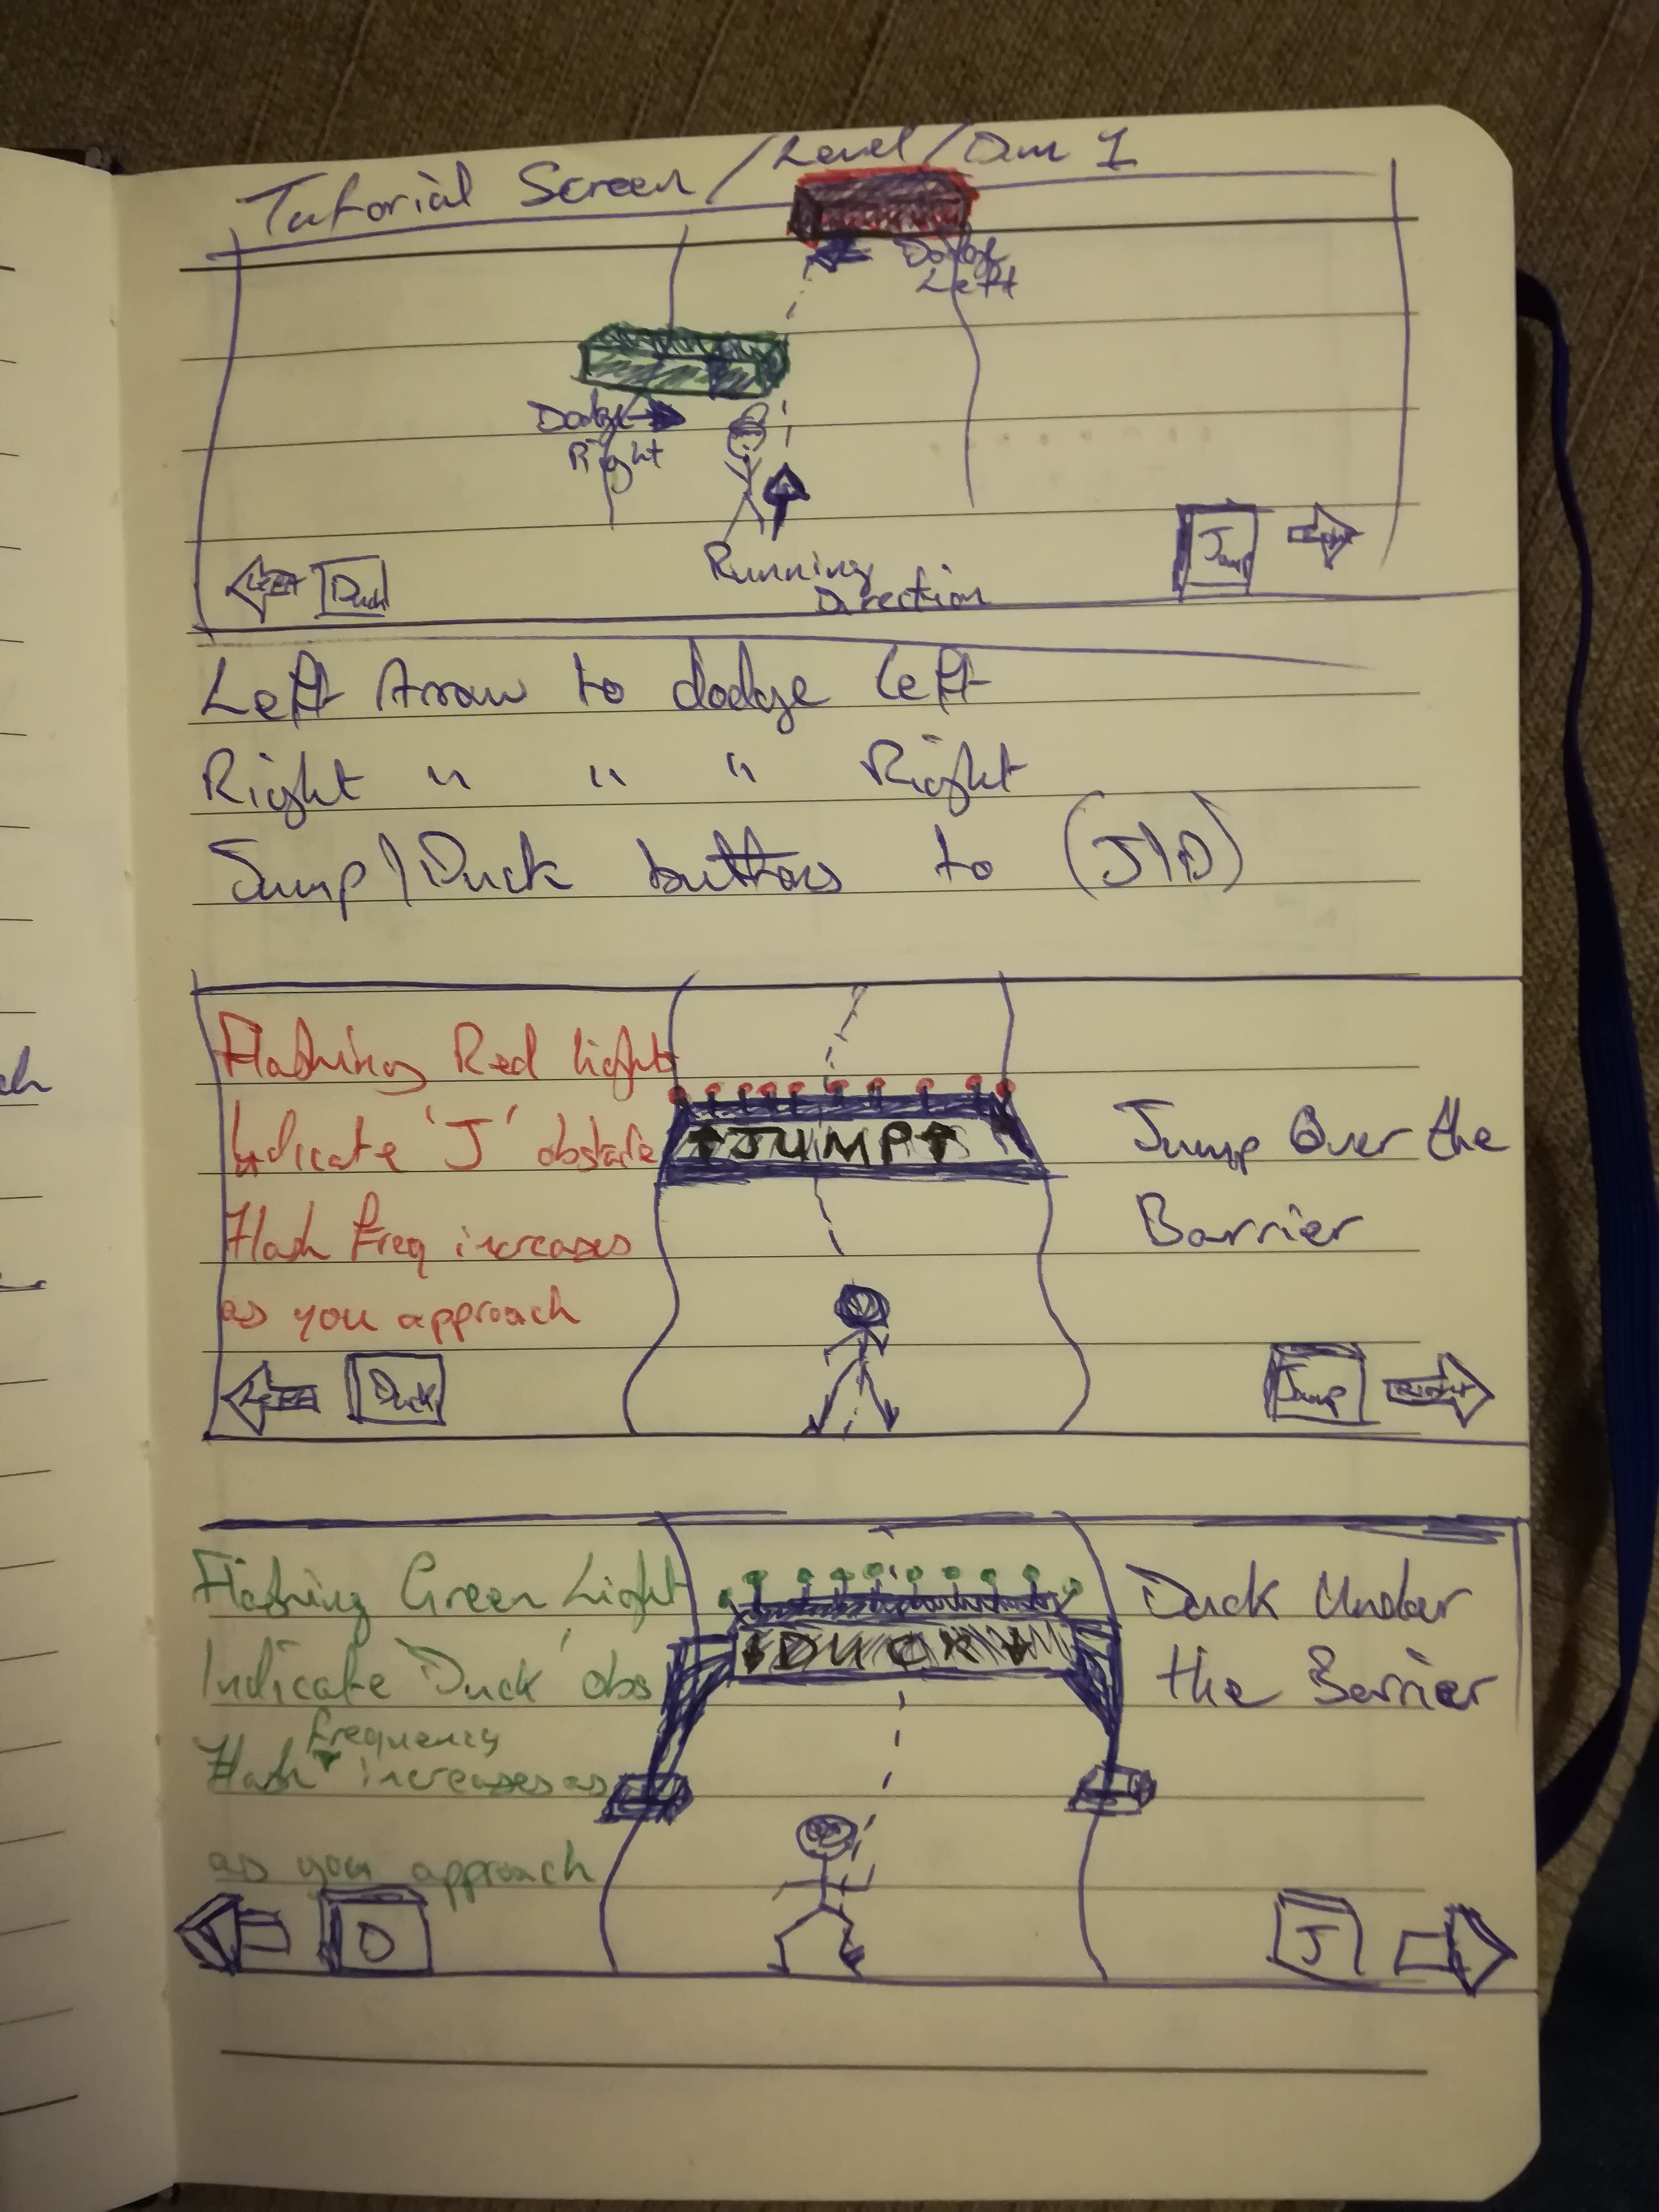 Tutorial Screen / Level / Dum 1
Dodge
Left
Dodge
Right
Running
Direction
Left
Duck
Jump
Left Arrow to dodge left
Right " " " Right
Jump/Duck buttons to (J/D)
Flashing Red lights
Indicate 'J' obstacle
Flash freq increases
as you approach
↑JUMP↑
Jump Over the
Barrier
Left
Duck
Jump
Right
Flashing Green Light
Indicate 'Duck' obs
Flash frequency increases as
as you approach
↓DUCK↓
Duck Under
the Barrier
D
J